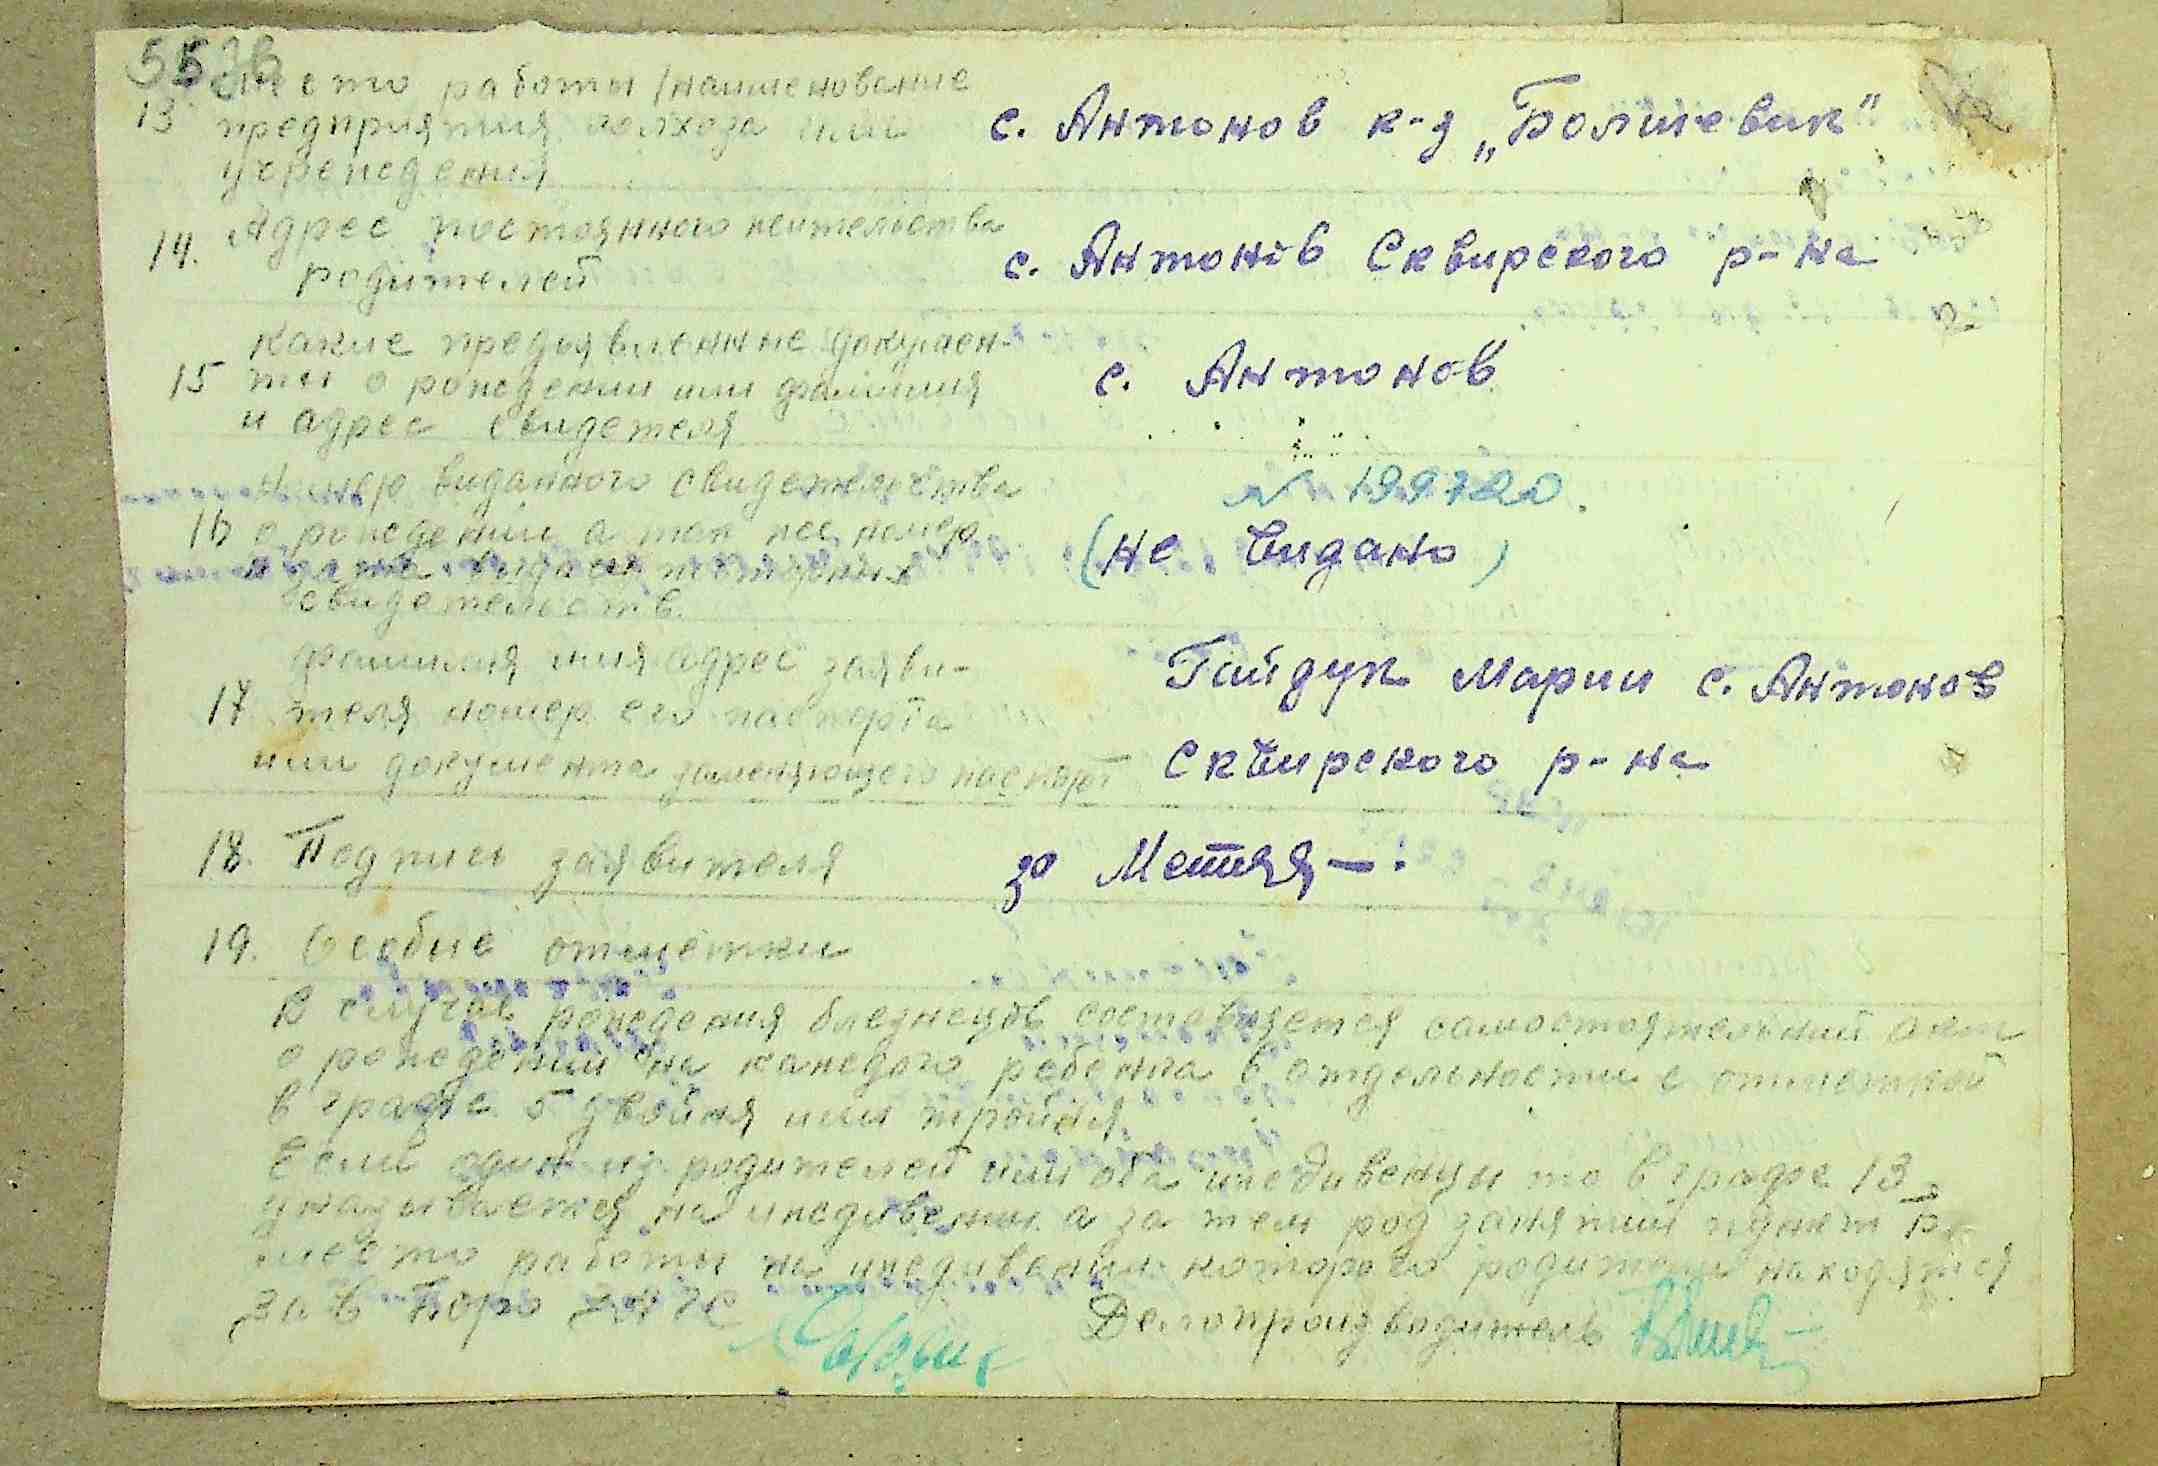 место работы /наименование
13 предприятия колхоза или
учреждения
с. Антонов к-з „Большевик"
14. Адрес постоянного жительства
родителей
с. Антонов Сквирского р-на
какие предъявленние докумен-
15 ты о рождении или фамилия
и адрес свидетеля
с. Антонов
Номер виданного свидетельства
16 о рождении а так же номер
и дата выдачи повторных
свидетельств.
№ 199720.
(не видано)
фамилия имя адрес заяви-
17 теля номер его паспорта
или документа заменяющего паспорт
Гайдук Марии с. Антонов
Сквирского р-на
18. Подпись заявителя
за
19. Особие отметки
В случае рождения близнецов составляется самостоятельний акт
о рождении на каждого ребенка в отдельности с отметкой
в графе 5 двойня или тройня
Если один из родителей или оба иждивенцы то в графе 13
указывается на иждивении а за тем род занятий
место работы на иждивении которого родители находятся
Зав Бюро ЗАГС Делопроизводитель